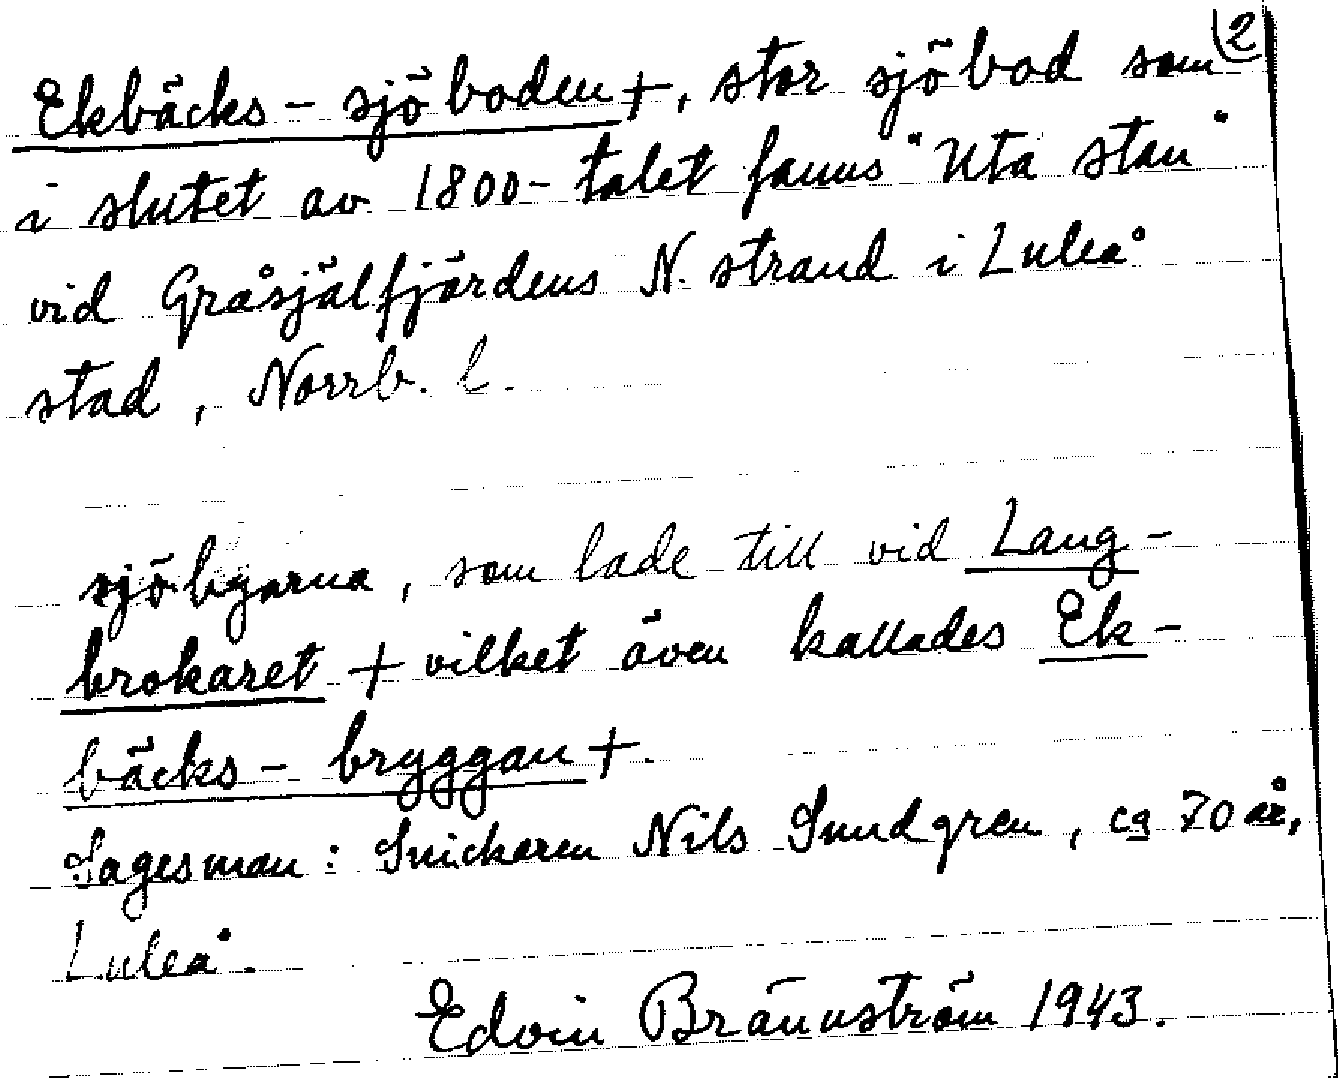 2
Ekbäcks-sjöboden +, stor sjöbod som
i slutet av 1800-talet fanns "Uta stan"
vid Gråsjälfjärdens N. strand i Luleå
stad, Norrb. l.
sjöbyarna, som lade till vid Lang-
brokaret + vilket även kallades Ek-
bäcks-bryggan +.
Sagesman: Snickaren Nils Sundgren, ca 70 år,
Luleå.
Edvin Brännström 1943.